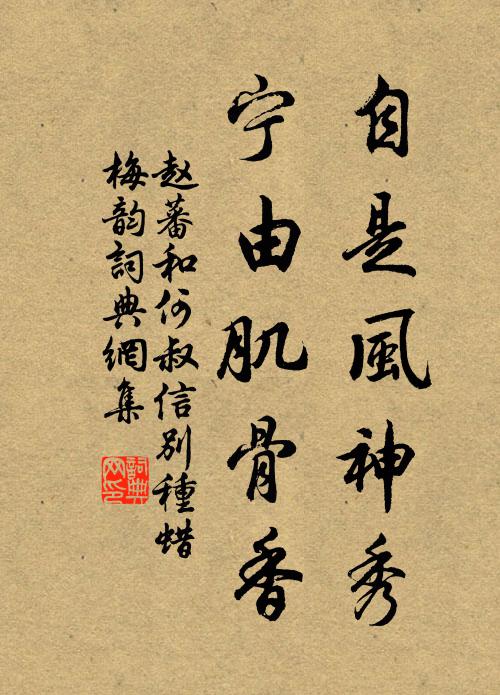 自是風神秀
宁由肌骨香
赵蕃和何叔信別種蜡
梅韵詞典網集
詞典网印